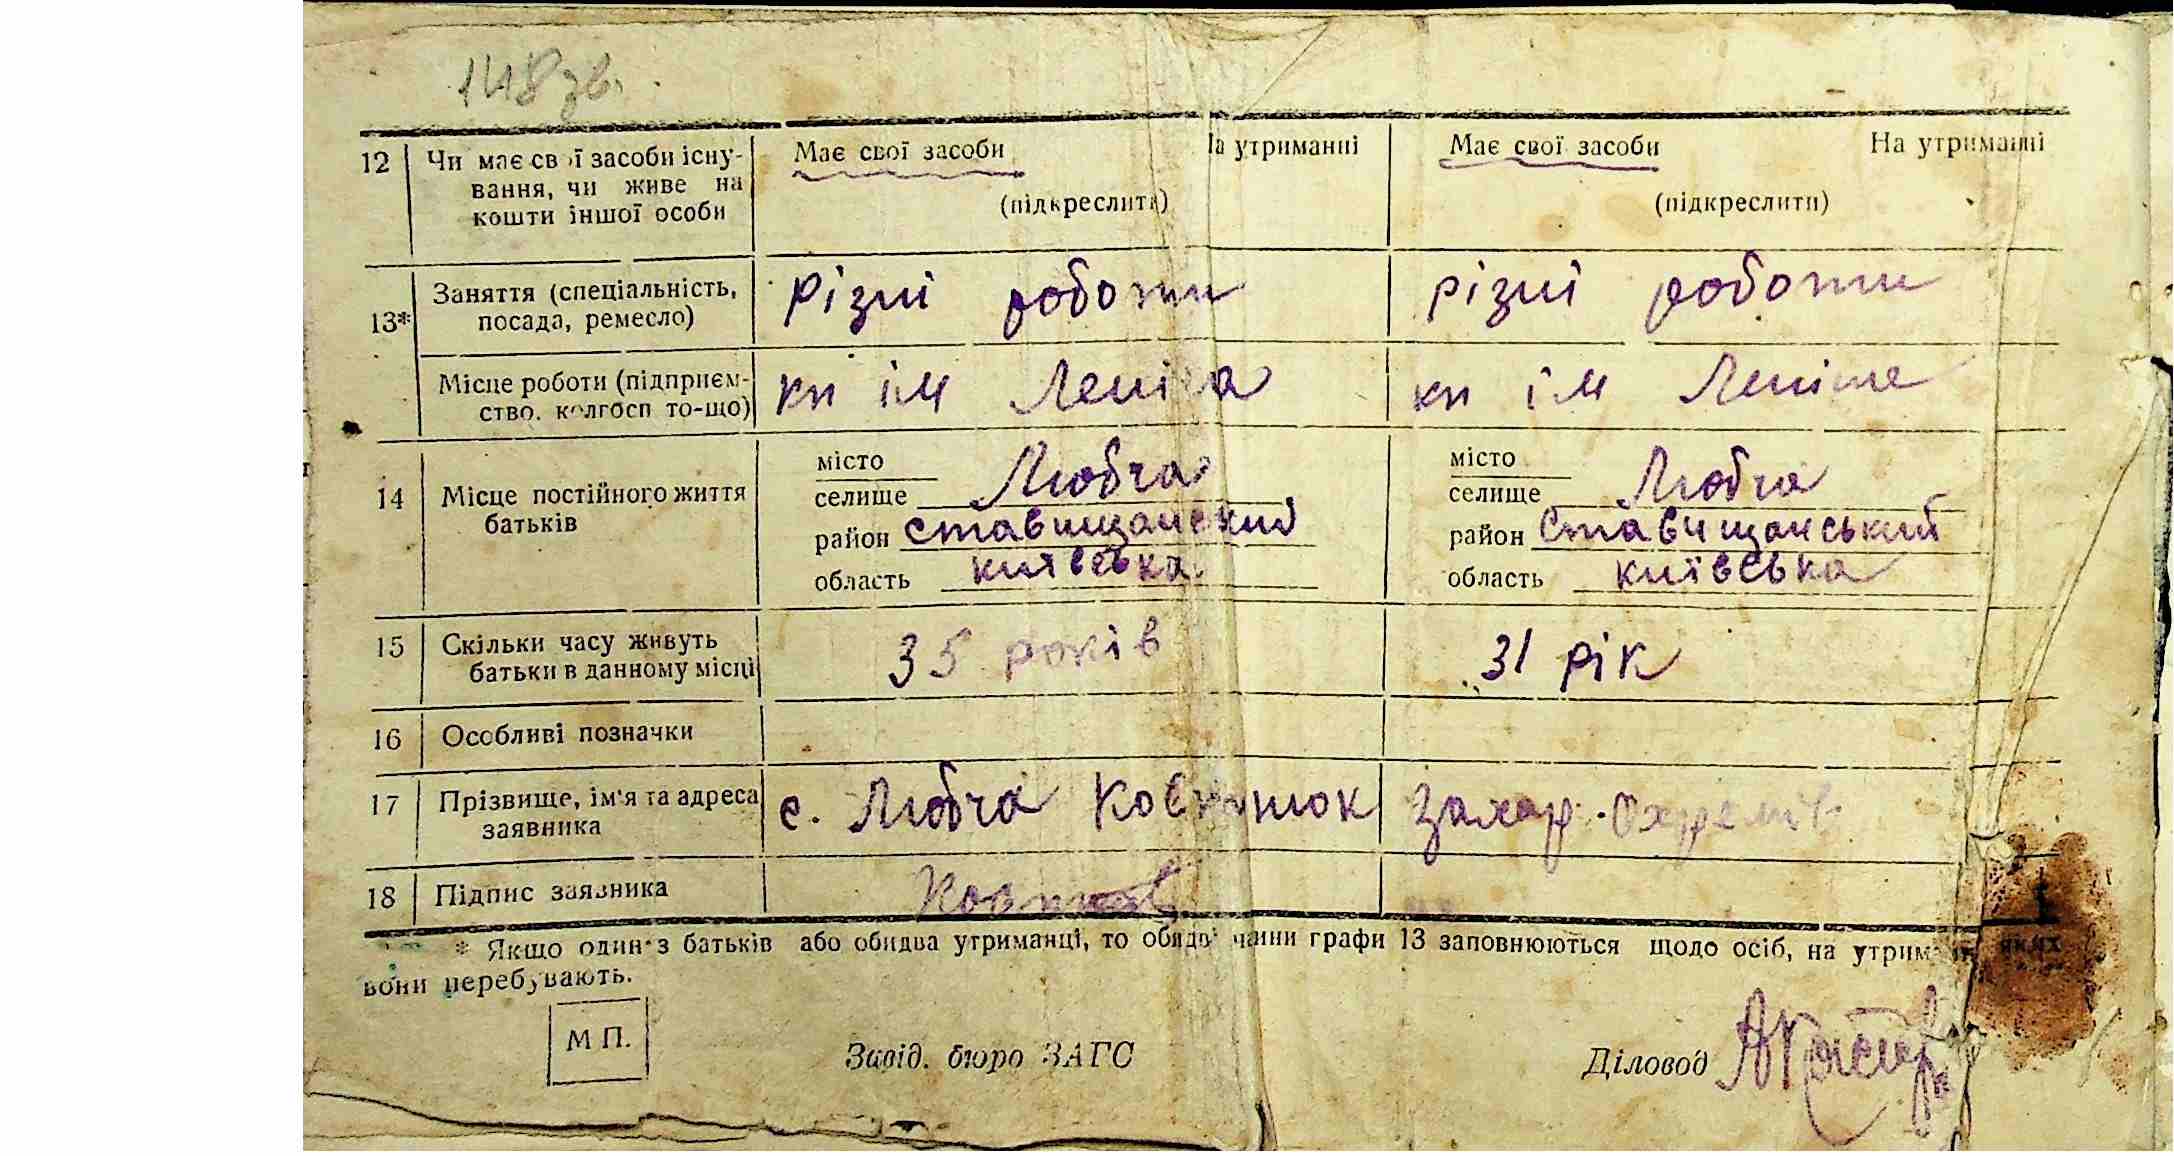 148 зв.
12 Чи має свої засоби існу- Має свої засоби На утриманні Має свої засоби На утриманні
вання, чи живе на
кошти іншої особи (підкреслити) (підкреслити)
13* Заняття (спеціальність, різні роботи різні роботи
посада, ремесло)
Місце роботи (підприєм- кп ім Леніна кп ім Леніна
ство, колгосп то-що)
місто місто
14 Місце постійного життя селище Любча селище Любча
батьків район ставищанский район Ставищанський
область київська область київська
15 Скільки часу живуть 35 років 31 рік
батьки в данному місці
16 Особливі позначки
17 Прізвище, ім'я та адреса с. Любча Захар Охремів
заявника
18 Підпис заявника
* Якщо один з батьків або обидва утриманці, то обидві чанни графи 13 заповнюються щодо осіб, на утриманні яких
вони перебувають.
М П. Завід. бюро ЗАГС Діловод